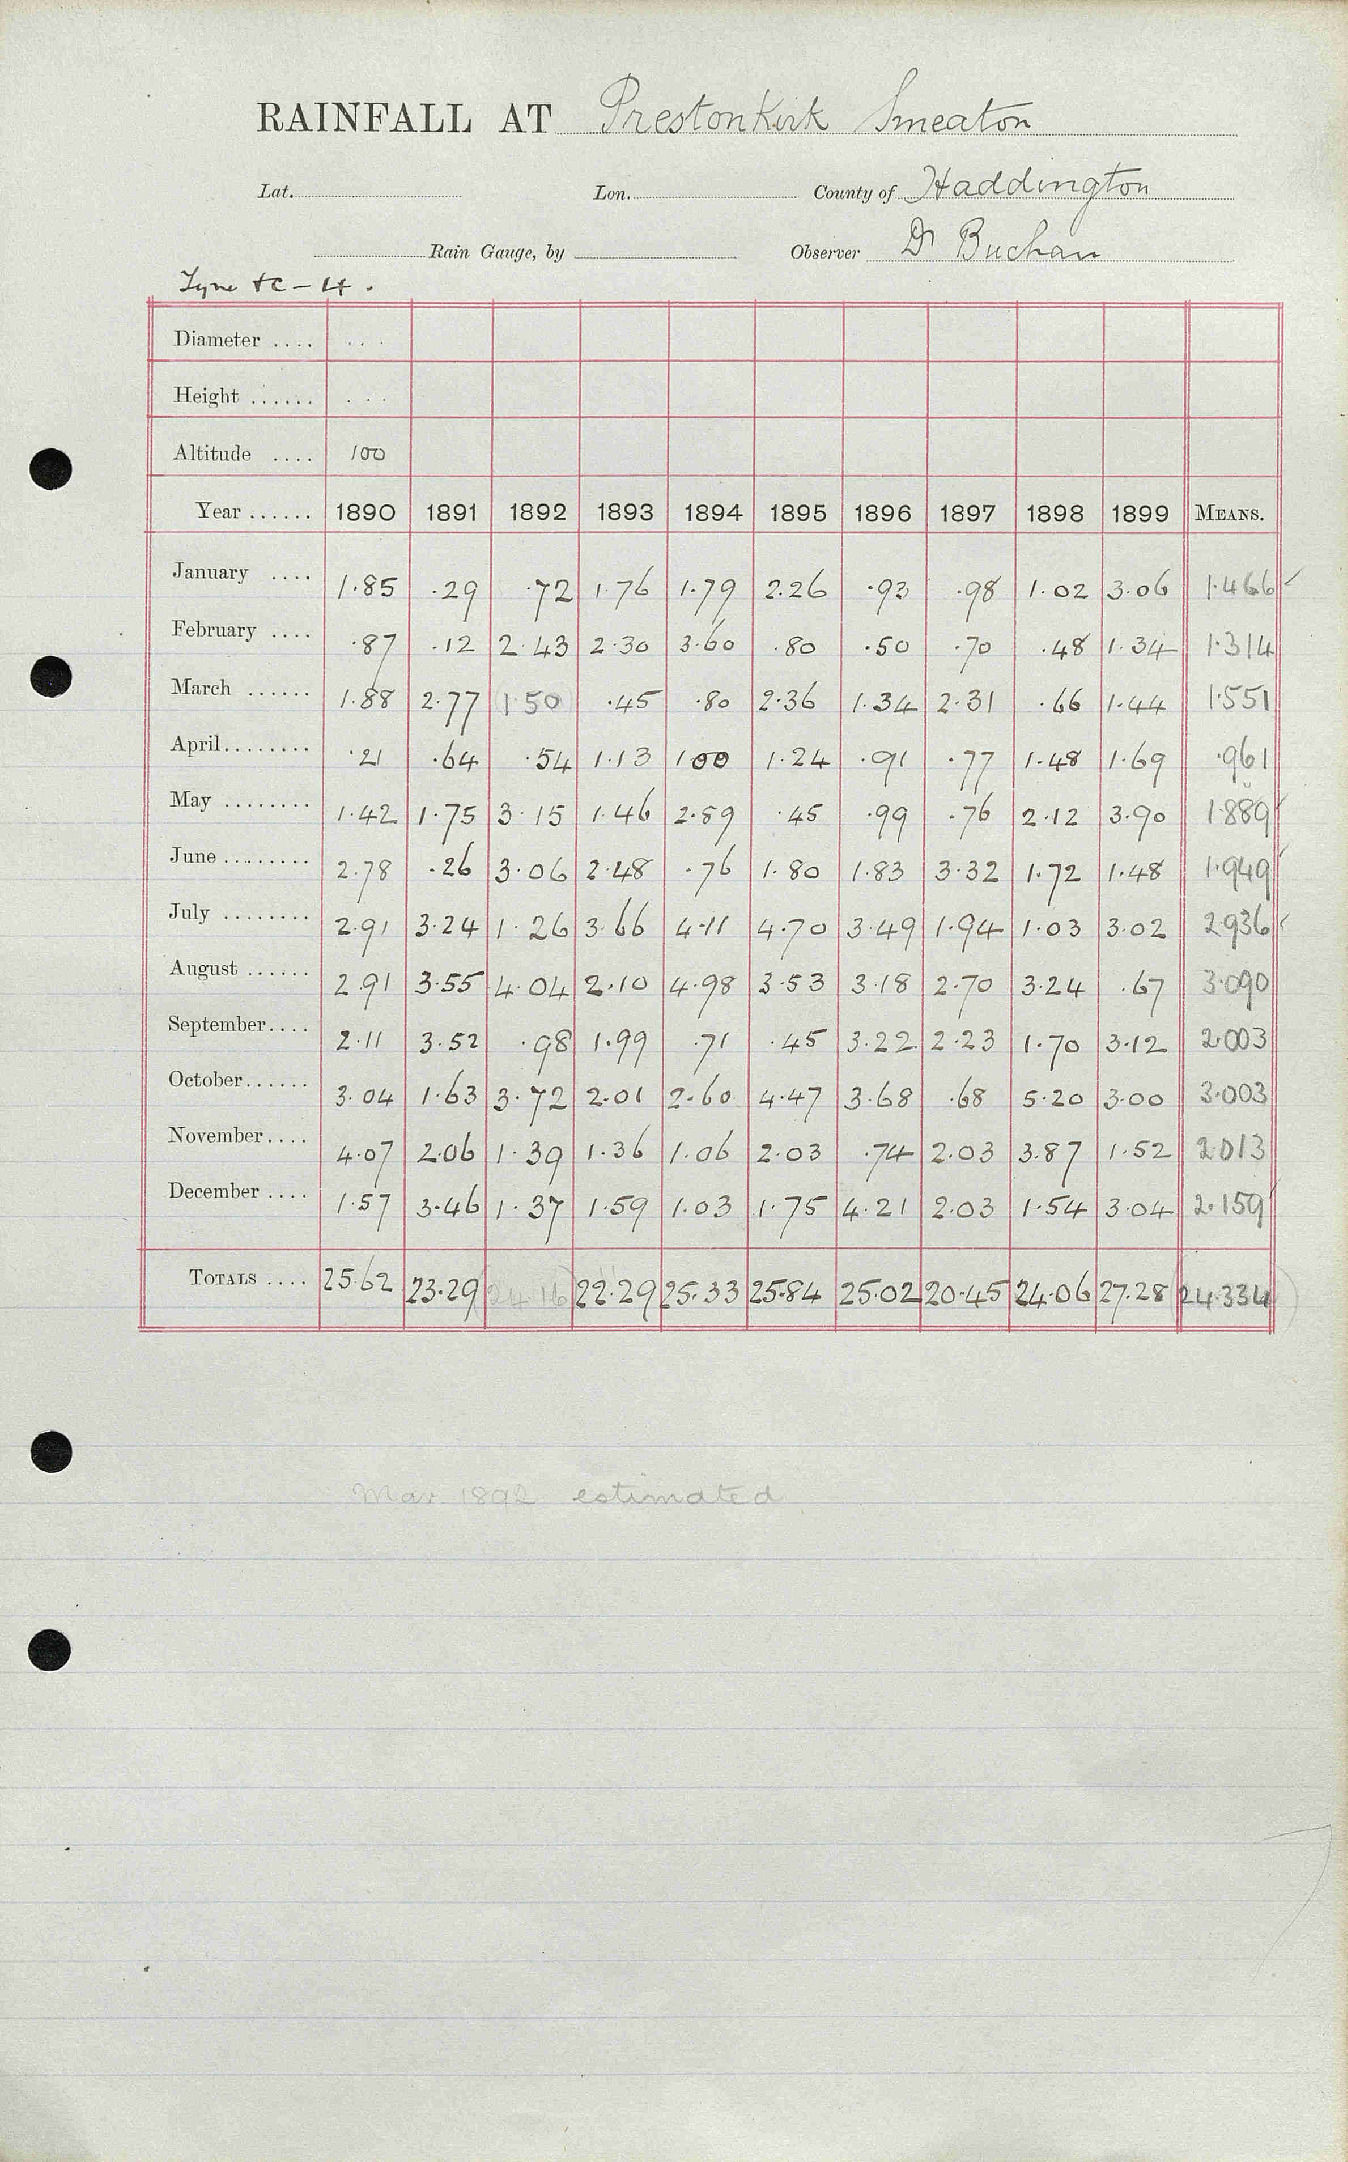 RAINFALL AT Prestonkirk Smeaton
Lat. Lon. County of Haddington
Rain Gauge, by Observer Dr Buchan
Tyne tc - 4.
Diameter .... ...
Height ...... ...
Altitude .... 100
Year ...... 1890 1891 1892 1893 1894 1895 1896 1897 1898 1899 MEANS.
January .... 1.85 .29 .72 1.76 1.79 2.26 .93 .98 1.02 3.06 1.466 ✓
February .... .87 .12 2.43 2.30 3.60 .80 .50 .70 .48 1.34 1.314
March ...... 1.88 2.77 (1.50) .45 .80 2.36 1.34 2.31 .66 1.44 1.551
April ........ .21 .64 .54 1.13 1.00 1.24 .91 .77 1.48 1.69 .961
May ........ 1.42 1.75 3.15 1.46 2.89 .45 .99 .76 2.12 3.90 1.889 ✓
June ........ 2.78 .26 3.06 2.48 .76 1.80 1.83 3.32 1.72 1.48 1.949 ✓
July ........ 2.91 3.24 1.26 3.66 4.11 4.70 3.49 1.94 1.03 3.02 2.936 ✓
August ...... 2.91 3.55 4.04 2.10 4.98 3.53 3.18 2.70 3.24 .67 3.090
September .... 2.11 3.52 .98 1.99 .71 .45 3.22 2.23 1.70 3.12 2.003
October ...... 3.04 1.63 3.72 2.01 2.60 4.47 3.68 .68 5.20 3.00 3.003
November .... 4.07 2.06 1.39 1.36 1.06 2.03 .74 2.03 3.87 1.52 2.013
December .... 1.57 3.46 1.37 1.59 1.03 1.75 4.21 2.03 1.54 3.04 2.159 ✓
TOTALS .... 25.62 23.29 (24.16) 22.29 25.33 25.84 25.02 20.45 24.06 27.28 (24.334)
Mar. 1892 estimated